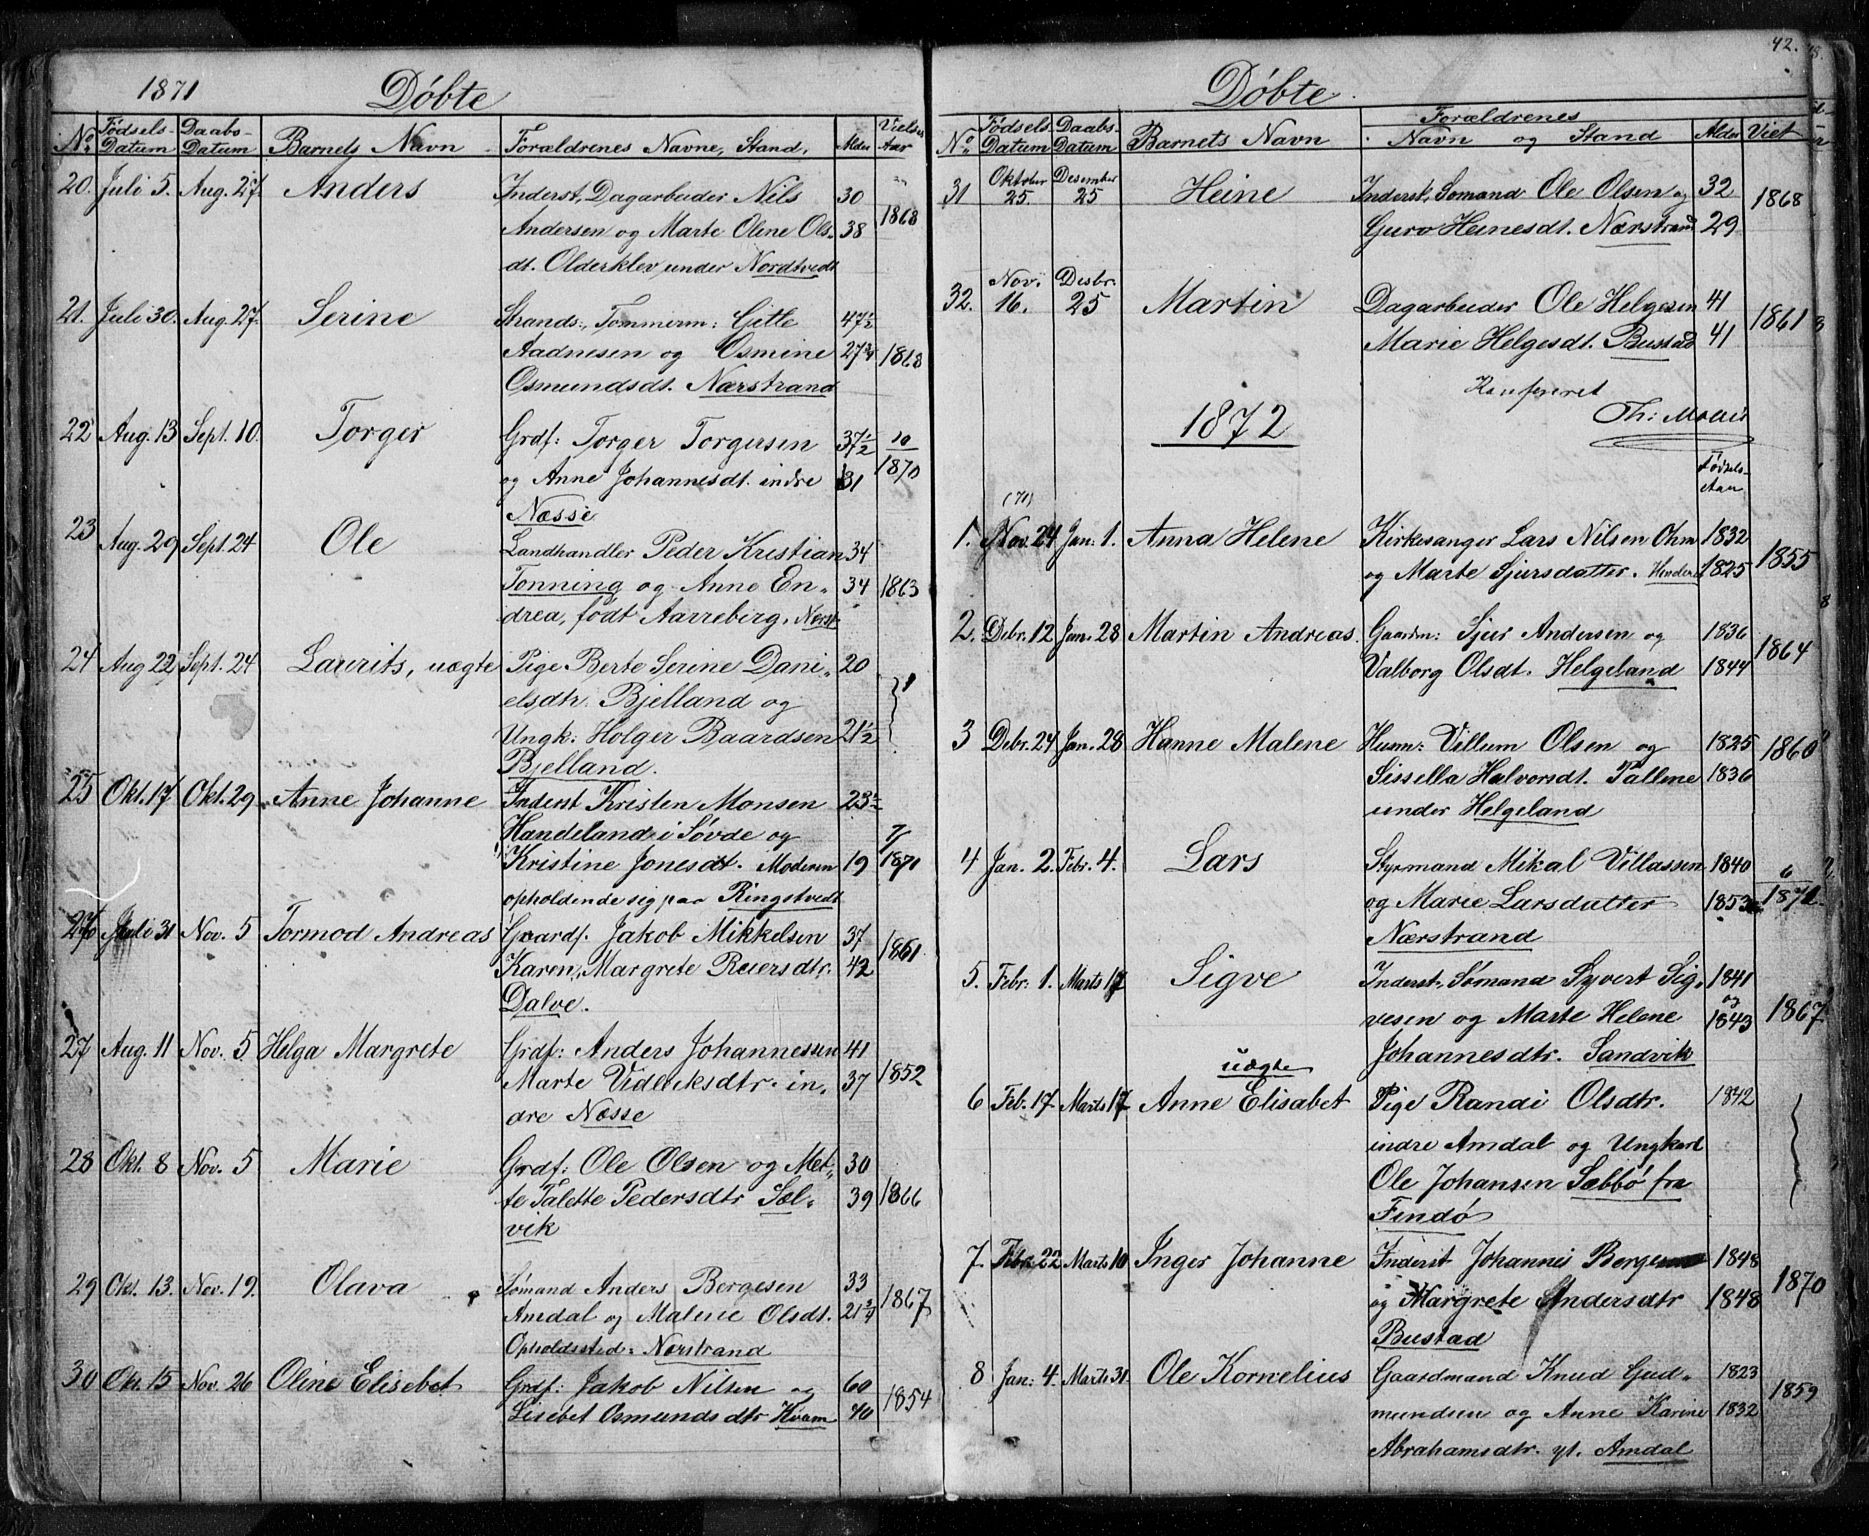 1871 Döbte
No. Födsels-Datum Daabs-Datum Barnets Navn Forældrenes Navne, Stand, Alder Vielses Aar
20. Juli 5. Aug. 27. Anders Inderst, Dagarbeider Nils 30
Andersen og Marte Oline Ols- 38 1868
dt. Olderklev under Nordtvedt
21. Juli 30. Aug. 27. Serine Strands:, Tømmerm: Gitle 47½
Aadnesen og Osmine 27¾ 1868
Osmundsdt. Nærstrand
22 Aug. 13 Sept. 10. Torger Grdf: Torger Torgersen 37½ 10
og Anne Johannesdt. indre 31 1870
Næsse
23 Aug. 29 Sept. 24 Ole Landhandler Peder Kristian 34
Tonning og Anne En- 34 1863
drea, født Aarreberg, Nerst
24 Aug 22 Sept. 24 Laurits, uægte Pige Berte Serine Dani- 20
elsdtr. Bjelland og
Ungk: Holger Baardsen 21½
Bjelland.
25 Okt. 17 Okt. 29 Anne Johanne Inderst Kristen Monsen 23½
Handeland i Søvde og 7/
Kristine Jonesdt. Moderen 19 1871
opholdende sig paa Ringstvedt
27 Juli 31 Nov. 5 Tormod Andreas Gaardf. Jakob Mikkelsen 37
Karen, Margrete Reiersdtr. 42 1861
Dalve.
27 Aug. 11 Nov. 5 Helga Margrete Grdf: Anders Johannessen 41
Marte Vidleiksdtr. in- 37 1852
dre Næsse
28 Okt. 8 Nov. 5 Marie Grdf: Ole Olsen og Met- 30
te Talette Pedersdtr Sæl- 39 1866
vik
29 Okt. 13. Nov. 19. Olava Sømand Anders Bergesen 33
Amdal og Malene Olsdt. 21¾ 1867
Opholdssted: Nærstrand
30 Okt. 15 Nov. 26 Oline Elisebet Grdf: Jakob Nilsen og 60
Lisebet Osmundsdtr Kvam 40 1854
42.
Döbte.
No. Födsels Datum Daabs-Datum Barnets Navn Forældrenes Navn og Stand Alder Viet
31 Oktober 25. Desember 25 Heine Inderst, Sømand Ole Olsen og 32 1868
Guro Heinesdt. Nærstrand 29
32. Nov. 16. Desbr. 25 Martin Dagarbeider Ole Helgesen 41
Marie Helgesdt. Bustad 41 1861
Konfereret
1872 Th: Møller
Fødsels-
Aar
(71)
1. Nov. 24 Jan: 1. Anna Helene Kirkesanger Lars Nilsen Ohm 1832
og Marte Sjursdatter. 1825 1855
2. Debr. 12 Jan. 28 Martin Andreas. Gaardm: Sjur Andersen og 1836
Valborg Olsdt. Helgeland 1844 1864
3 Debr. 24 Jan. 28 Hanne Malene Husm: Villum Olsen og 1825 1860
Sissella Halvorsdt. Tallene 1836
under Helgeland
4 Jan. 2. Febr. 4. Lars Styrmand Mikal Villassen 1840 6
og Marie Larsdatter 1853 1871
Nærstrand
5. Febr. 1. Marts 17 Sigve Inderst, Sømand Syvert Sig- 1841
og
vesen og Marte Helene 1843 1867
Johannesdtr. Sandvik
uægte
6 Feb. 17 Marts 17 Anne Elisabet Pige Randi Olsdtr. 1842
indre Amdal og Ungkarl
Ole Johansen Sæbbø fra
Findö
7. Febr. 22 Marts 10 Inger Johanne Inderst Johannes Bergesen 1848
og Margrete Andersdtr 1848 1870
Bustad
8 Jan: 4. Marts 31 Ole Kornelius Gaardmand Knud Gud- 1823
mundsen og Anne Karine 1832 1859
Abrahamsdtr. yt. Amdal